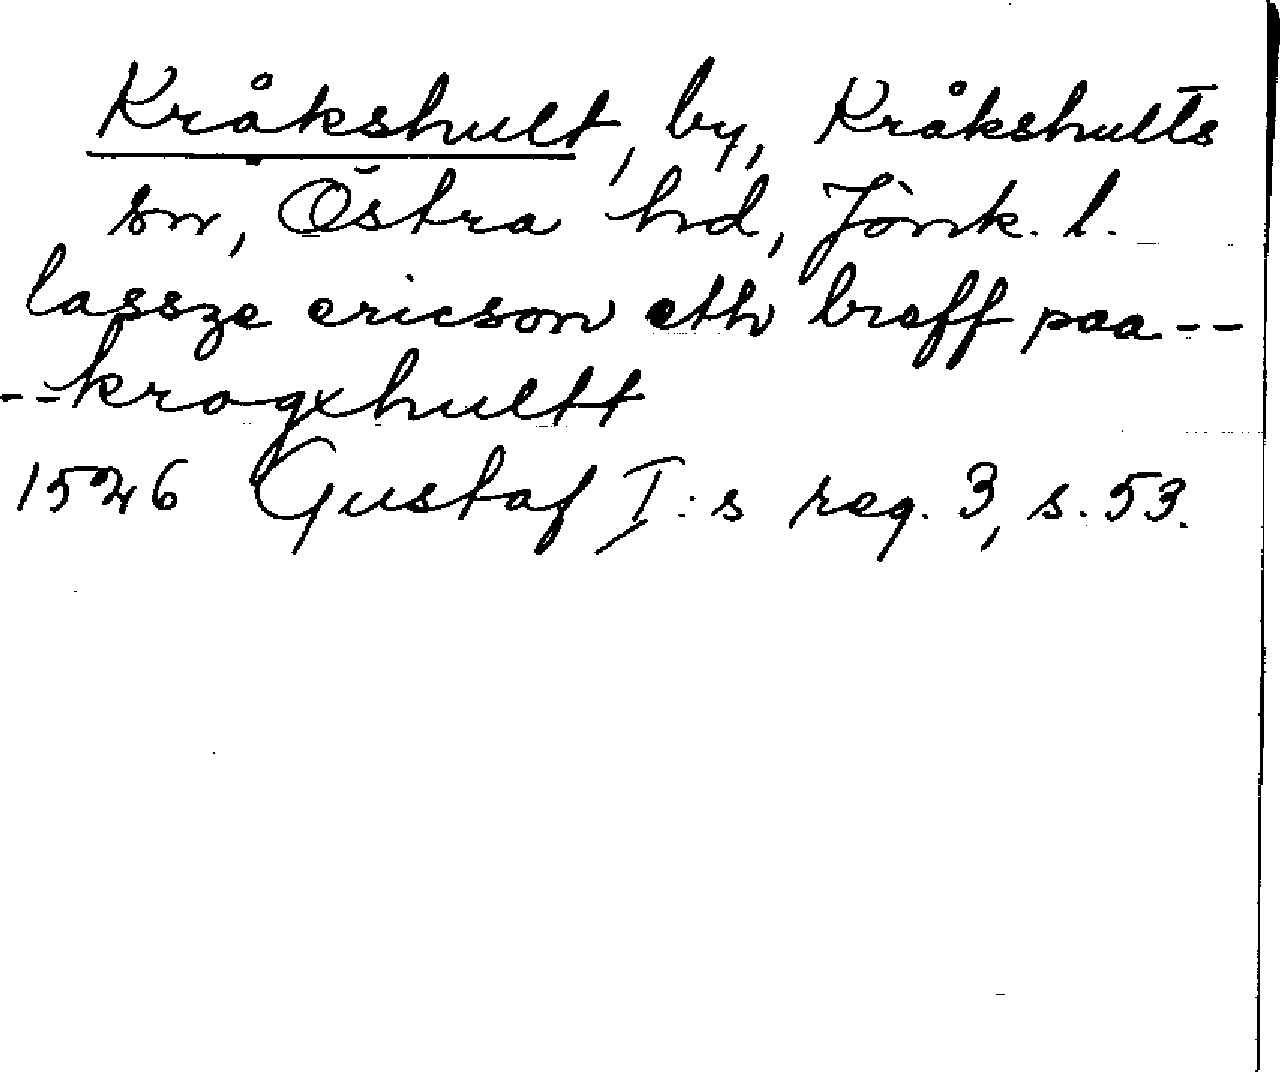 Kråkshult, by, Kråkshults
sn, Östra hd, Jönk. l.
lassze ericson eth breff paa --
-- kragxhultt
1526 Gustaf I:s reg. 3, s. 53.